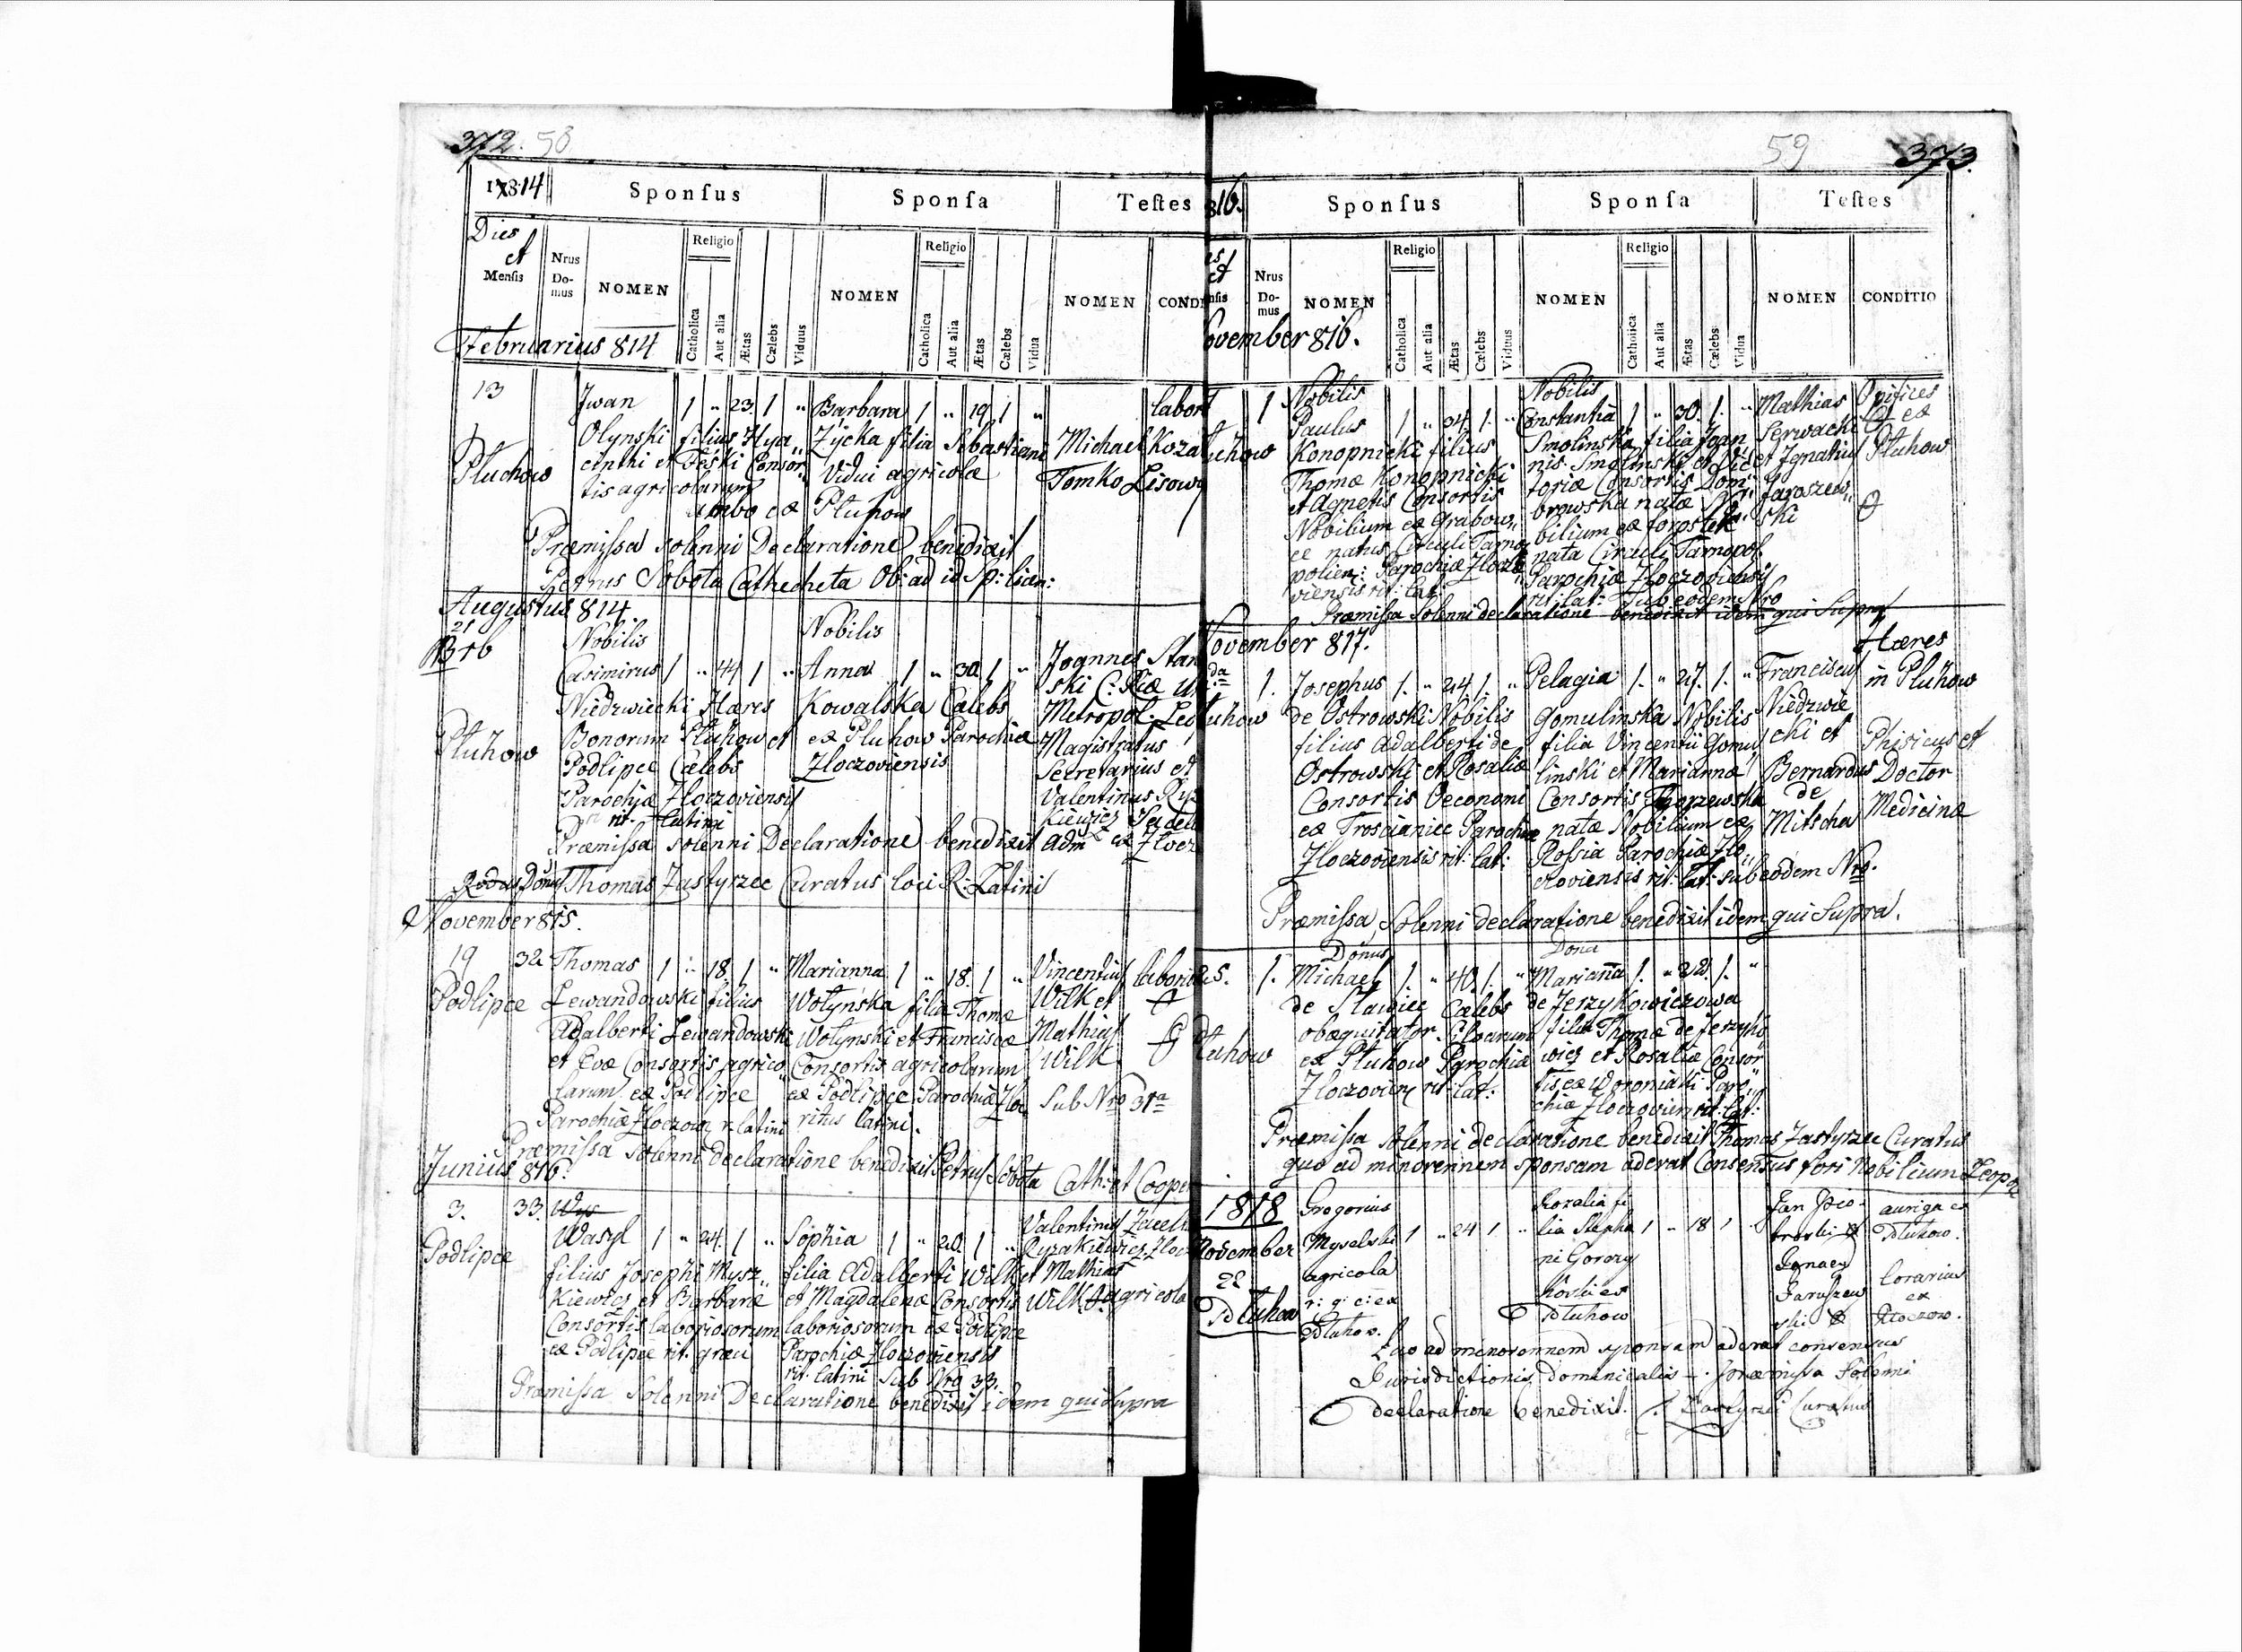 372. 58
1814
Sponſus
Sponſa
Teſtes
Dies et Menſis
Nrus Do-mus
NOMEN
Religio
Catholica
Aut alia
Ætas
Cælebs
Viduus
NOMEN
Religio
Catholica
Aut alia
Ætas
Cælebs
Vidua
NOMEN
CONDI
Februarius 814
13 Jwan 1 " 23. 1 " Barbara 1 " 19 1 " labor
Olynski filius Hya" Zÿcka filia Sebastiani Michael Koza
Pluchow cinthi et Feski Consor" Vidui agricolæ Tomko Lisow
tis agricolarum
ambo ex Pluhow
Præmissa solenni Declaratione benedixit
Petrus Sobota Cathecheta Ob: ad id Sp: licen:
Augustus 814.
21 Nobilis Nobilis
Nro 6 Casimirus 1 " 44 1 " Anna 1 " 30. 1 " Joannes Stan
Niedzwiecki Hæres Kowalska Cælebs ski C: Riæ
Pluhow Bonorum Pluhow et ex Pluhow Parochiæ Metropol: Leo
Podlipce Cælebs Zloczoviensis Magistratus
Parochjæ Zloczoviensis Secretarius et
rit. Latini Valentinus Ryz
Præmissa solenni Declaratione benedixit kiewicz
Adm ex Zlocz
Rodus Donus Thomas Zastyrzec Curatus loci R: Latini
November 815.
19 32 Thomas 1 " 18. 1 " Marianna 1 " 18. 1 " Vincentius laborio
Podlipce Lewandowski filius Wotyńska filia Thomæ Wilk et
Adalberti Lewandowski Wotynski et Franciscæ Mathias
et Evæ Consortis agrico" Consortis agricolarum Wilk
larum ex Podlipce ex Podlipce Parochiæ Zloc" Sub Nro 31a
Parochiæ Zloczov: r: latini ritus latini.
Præmissa solenni declaratione benedixit Petrus Sobota Cath: et Coope
Junius 816.
3. 33. Wys
Wasyl 1 " 24. 1 " Sophia 1 " 20. 1 " Valentinus
Podlipce filius Josephi Mysz" filia Adalberti Wilk Ryzakiewicz Zlocz
kiewicz et Barbaræ et Magdalenæ Consortis et Mathias
Consortis laboriosorum laboriosorum ex Podlipce Wilk agricola
ex Podlipce rit. græci Parochiæ Zloczoviensis
rit. latini Sub Nro 33.
Præmissa Solenni Declaratione benedixit idem qui Supra
59 373.
816.
Sponſus
Sponſa
Teſtes
Nrus Do-mus
NOMEN
Religio
Catholica
Aut alia
Ætas
Cælebs
Viduus
NOMEN
Religio
Catholica
Aut alia
Ætas
Cælebs
Vidua
NOMEN
CONDITIO
ovember 816.
1 Nobilis Nobilis
Paulus 1 " 34. 1. " Constantia 1 " 30. 1. " Mathias Opifices
uhow Konopnicki filius Smolinska filia Joan" Serwacki ex
Thomæ Konopnicki nis Smolinski et Vic" et Ignatius Pluhow
et Agnetis Consortis toriæ Consortis Dom" Jaroszew"
Nobilium ex Grabow" browska natæ No" ski
ce natus Circuli Tarno" bilium ex
polien: Parochiæ Zlocz" nata Circuli Tarnopol
viensis rit: lat: Parochiæ Zloczoviensis
rit: lat: Sub eodem Nro
Præmissa Solenni declaratione benedixit idem qui Supra
November 817.
1. Josephus 1. " 24. 1. " Pelagia 1. " 27. 1. " Franciscus Hæres
uhow de Ostrowski Nobilis Gomulinska Nobilis Niedzwie in Pluhow
filius Adalberti de filia Vincentii Gomu" cki et
Ostrowski et Rosaliæ linski et Mariannæ Bernardus Phisicus et
Consortis Oeconomi Consortis de Doctor
ex Troscianiec Parochiæ natæ Nobilium ex Mitscha Medicinæ
Zloczoviensis rit: lat: Rossia Parochiæ Zlo"
czoviensis rit: lat: sub eodem Nro.
Præmissa Solenni declaratione benedixit idem qui Supra.
Donus Dona
25. 1. Michael 1. " 40. 1. " Marianna 1. " 22. 1. "
de Cælebs de Jerzykowiczowa
Pluhow obæquitator filia Thomæ de Jerzyko
ex Pluhow Parochiæ wicz et Rosaliæ Consor"
Zloczovien: rit: lat: tis ex Woroniaki Paro"
chiæ Zloczovien: rit: lat:
Præmissa solenni declaratione benedixit Thomas Zastyrzec Curatus
quo ad minorennem sponsam aderat Consensus fori Nobilium Leopol
1818 Gregorius Rozalia fi
November Myselski 1 " 24 1 " lia Stepha 1 " 18 1 " Jan auriga ex
22 agricola ni Gorog Pluhow.
Pluhow r: g: c: ex kóvki ex Ignacy lorarius
Pluhow. Pluhow Jaruszew ex
ski Zloczow.
Quo ad minorennem sponsam aderat consensus
Jurisdictionis Dominicalis. præmissa Solenni
declaratione benedixit. T. Zastyrzec Curatus